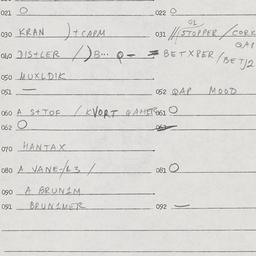 021 O 022 O
OL
030 KRAN ) + CAPM 031 // (STOPPER / CORK
QAP
040 DIS+LER / ) B... Q- BETXPER / BET)2
050 MUXLDIK
051 — 052 QAP MOOD
060 A S+TOF / KVORT QAMER 061 O
062 O
070 HANTAX
080 A VANE-/L3 / 081 O
090 A BRUN1M
091 BRUN1MER 092 —